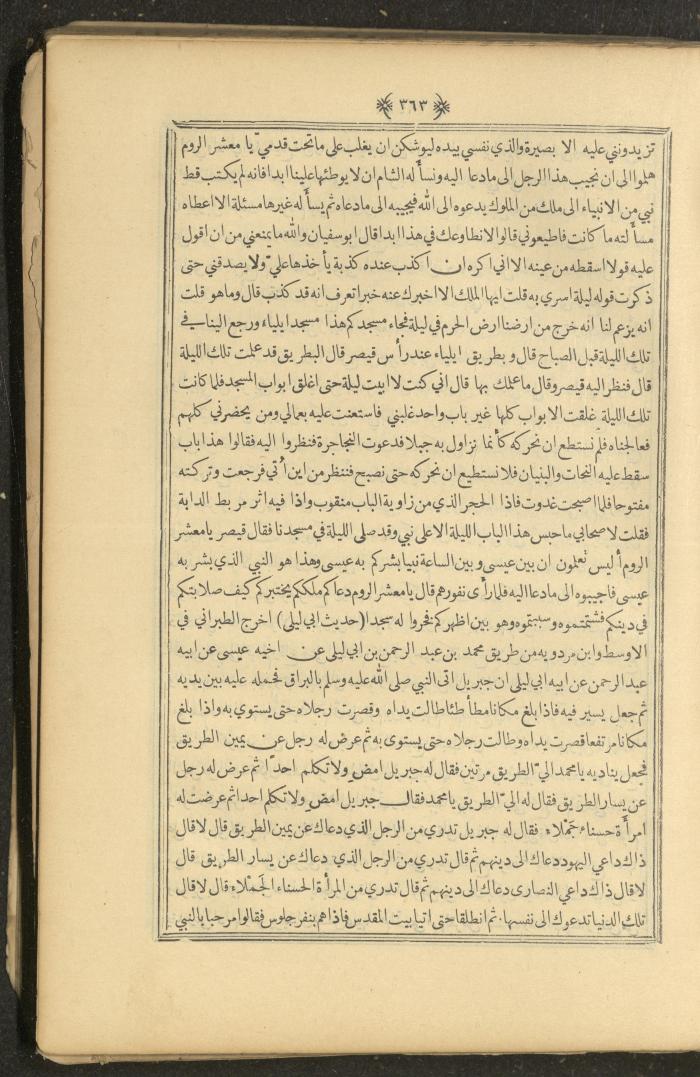 ٣٦٣
تزيدونني عليه الا بصيرة والذي نفسي بيده ليوشكن ان يغلب على ماتحت قدمي يا معشر الروم
هلموا الى ان نجيب هذا الرجل الى مادعا اليه ونسأله الشام ان لا يوطئها علينا ابدا فانه لم يكتب قط
نبي من الانبياء الى ملك من الملوك يدعوه الى الله فيجيبه الى مادعاه ثم يسأله غيرها مسئلة الا اعطاه
مسألته ما كانت فاطيعوني قالوا لا نطاوعك في هذا ابدا قال ابوسفيان والله ما يمنعني من ان اقول
عليه قولا اسقطه من عينه الا اني اكره ان اكذب عنده كذبة يأخذها علي ولا يصدقني حتى
ذكرت قوله ليلة اسري به قلت ايها الملك الا اخبرك عنه خبرا تعرف انه قد كذب قال وما هو قلت
انه يزعم لنا انه خرج من ارضنا ارض الحرم في ليلة فجاء مسجدكم هذا مسجد ايلياء ورجع الينا في
تلك الليلة قبل الصباح قال وبطريق ايلياء عند رأس قيصر قال البطريق قد علمت تلك الليلة
قال فنظر اليه قيصر وقال ما علمك بها قال اني كنت لا ابيت ليلة حتى اغلق ابواب المسجد فلما كانت
تلك الليلة غلقت الابواب كلها غير باب واحد غلبني فاستعنت عليه بعمالي ومن يحضرني كلهم
فعالجناه فلم نستطع ان نحركه كأنما نزاول به جبلا فدعوت النجاجرة فنظروا اليه فقالوا هذا باب
سقط عليه النجات والبنيان فلا نستطيع ان نحركه حتى نصبح فننظر من اين أتي فرجعت وتركته
مفتوحا فلما اصبحت غدوت فاذا الحجر الذي من زاوية الباب منقوب واذا فيه اثر مربط الدابة
فقلت لاصحابي ما حبس هذا الباب الليلة الا على نبي وقد صلى الليلة في مسجدنا فقال قيصر يا معشر
الروم أليس تعلمون ان بين عيسى وبين الساعة نبيا بشركم به عيسى وهذا هو النبي الذي بشر به
عيسى فاجيبوه الى ما دعا اليه فلما رأى نفورهم قال يا معشر الروم دعاكم ملككم يختبركم كيف صلابتكم
في دينكم فشتمتموه وسببتموه وهو بين اظهركم فخروا له سجدا (حديث ابي ليلى) اخرج الطبراني في
الاوسط وابن مردويه من طريق محمد بن عبد الرحمن بن ابي ليلى عن اخيه عيسى عن ابيه
عبد الرحمن عن ابيه ابي ليلى ان جبريل اتى النبي صلى الله عليه وسلم بالبراق فحمله عليه بين يديه
ثم جعل يسير فيه فاذا بلغ مكانا مطأطئا طالت يداه وقصرت رجلاه حتى يستوي به واذا بلغ
مكانا مرتفعا قصرت يداه وطالت رجلاه حتى يستوى به ثم عرض له رجل عن يمين الطريق
فجعل يناديه يا محمد اليّ الطريق مرتين فقال له جبريل امض ولا تكلم احدًا ثم عرض له رجل
عن يسار الطريق فقال له اليّ الطريق يا محمد فقال جبريل امض ولا تكلم احدا ثم عرضت له
امرأة حسناء جَملاء فقال له جبريل تدري من الرجل الذي دعاك عن يمين الطريق قال لا قال
ذاك داعي اليهود دعاك الى دينهم ثم قال تدري من الرجل الذي دعاك عن يسار الطريق قال
لا قال ذاك داعي النصارى دعاك الى دينهم ثم قال تدري من المرأة الحسناء الجَملاء قال لا قال
تلك الدنيا تدعوك الى نفسها. ثم انطلقا حتى اتيا بيت المقدس فاذا هم بنفر جلوس فقالوا مرحبا بالنبي